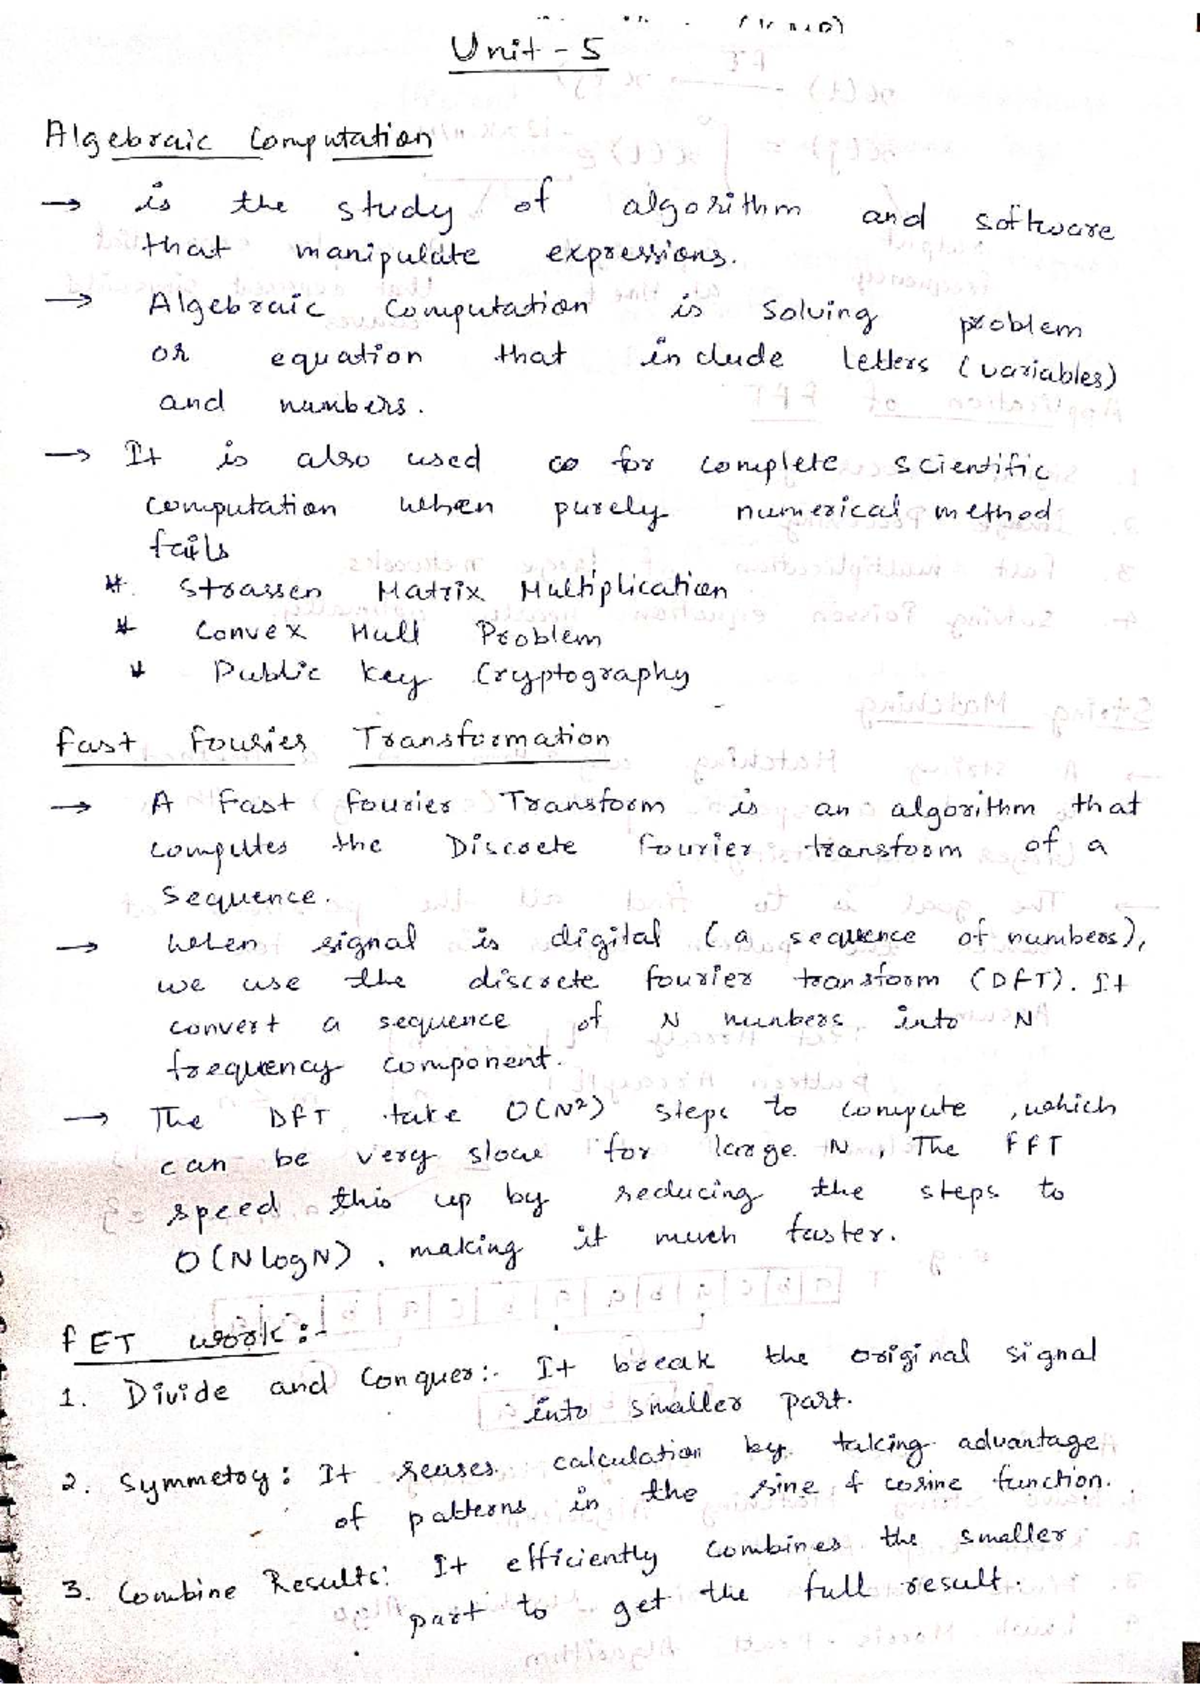 Unit - 5
Algebraic Computation
→ is the study of algorithm and software
that manipulate expressions.
→ Algebraic Computation is solving problem
or equation that include letters (variables)
and numbers.
→ It is also used for complete scientific
computation when purely numerical method
fails
* Strassen Matrix Multiplication
* Convex Hull Problem
* Public Key Cryptography
Fast Fourier Transformation
→ A Fast Fourier Transform is an algorithm that
computes the Discrete Fourier transform of a
sequence.
→ When signal is digital (a sequence of numbers),
we use the discrete fourier transform (DFT). It
convert a sequence of N numbers into N
frequency component.
→ The DFT take O(N²) steps to compute, which
can be very slow for large N, The FFT
speed this up by reducing the steps to
O(N log N), making it much faster.
FET work:-
1. Divide and Conquer:- It break the original signal
into smaller part.
2. Symmetry: It reuses calculation by taking advantage
of patterns in the sine & cosine function.
3. Combine Results: It efficiently combines the smaller
part to get the full result.